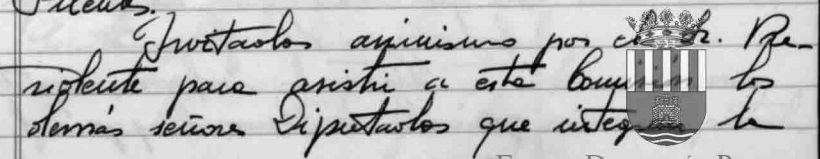 Invitados asimismo por el Sr. Pre-
sidente para asistir a esta Comisión los
demás señores Diputados que integran la